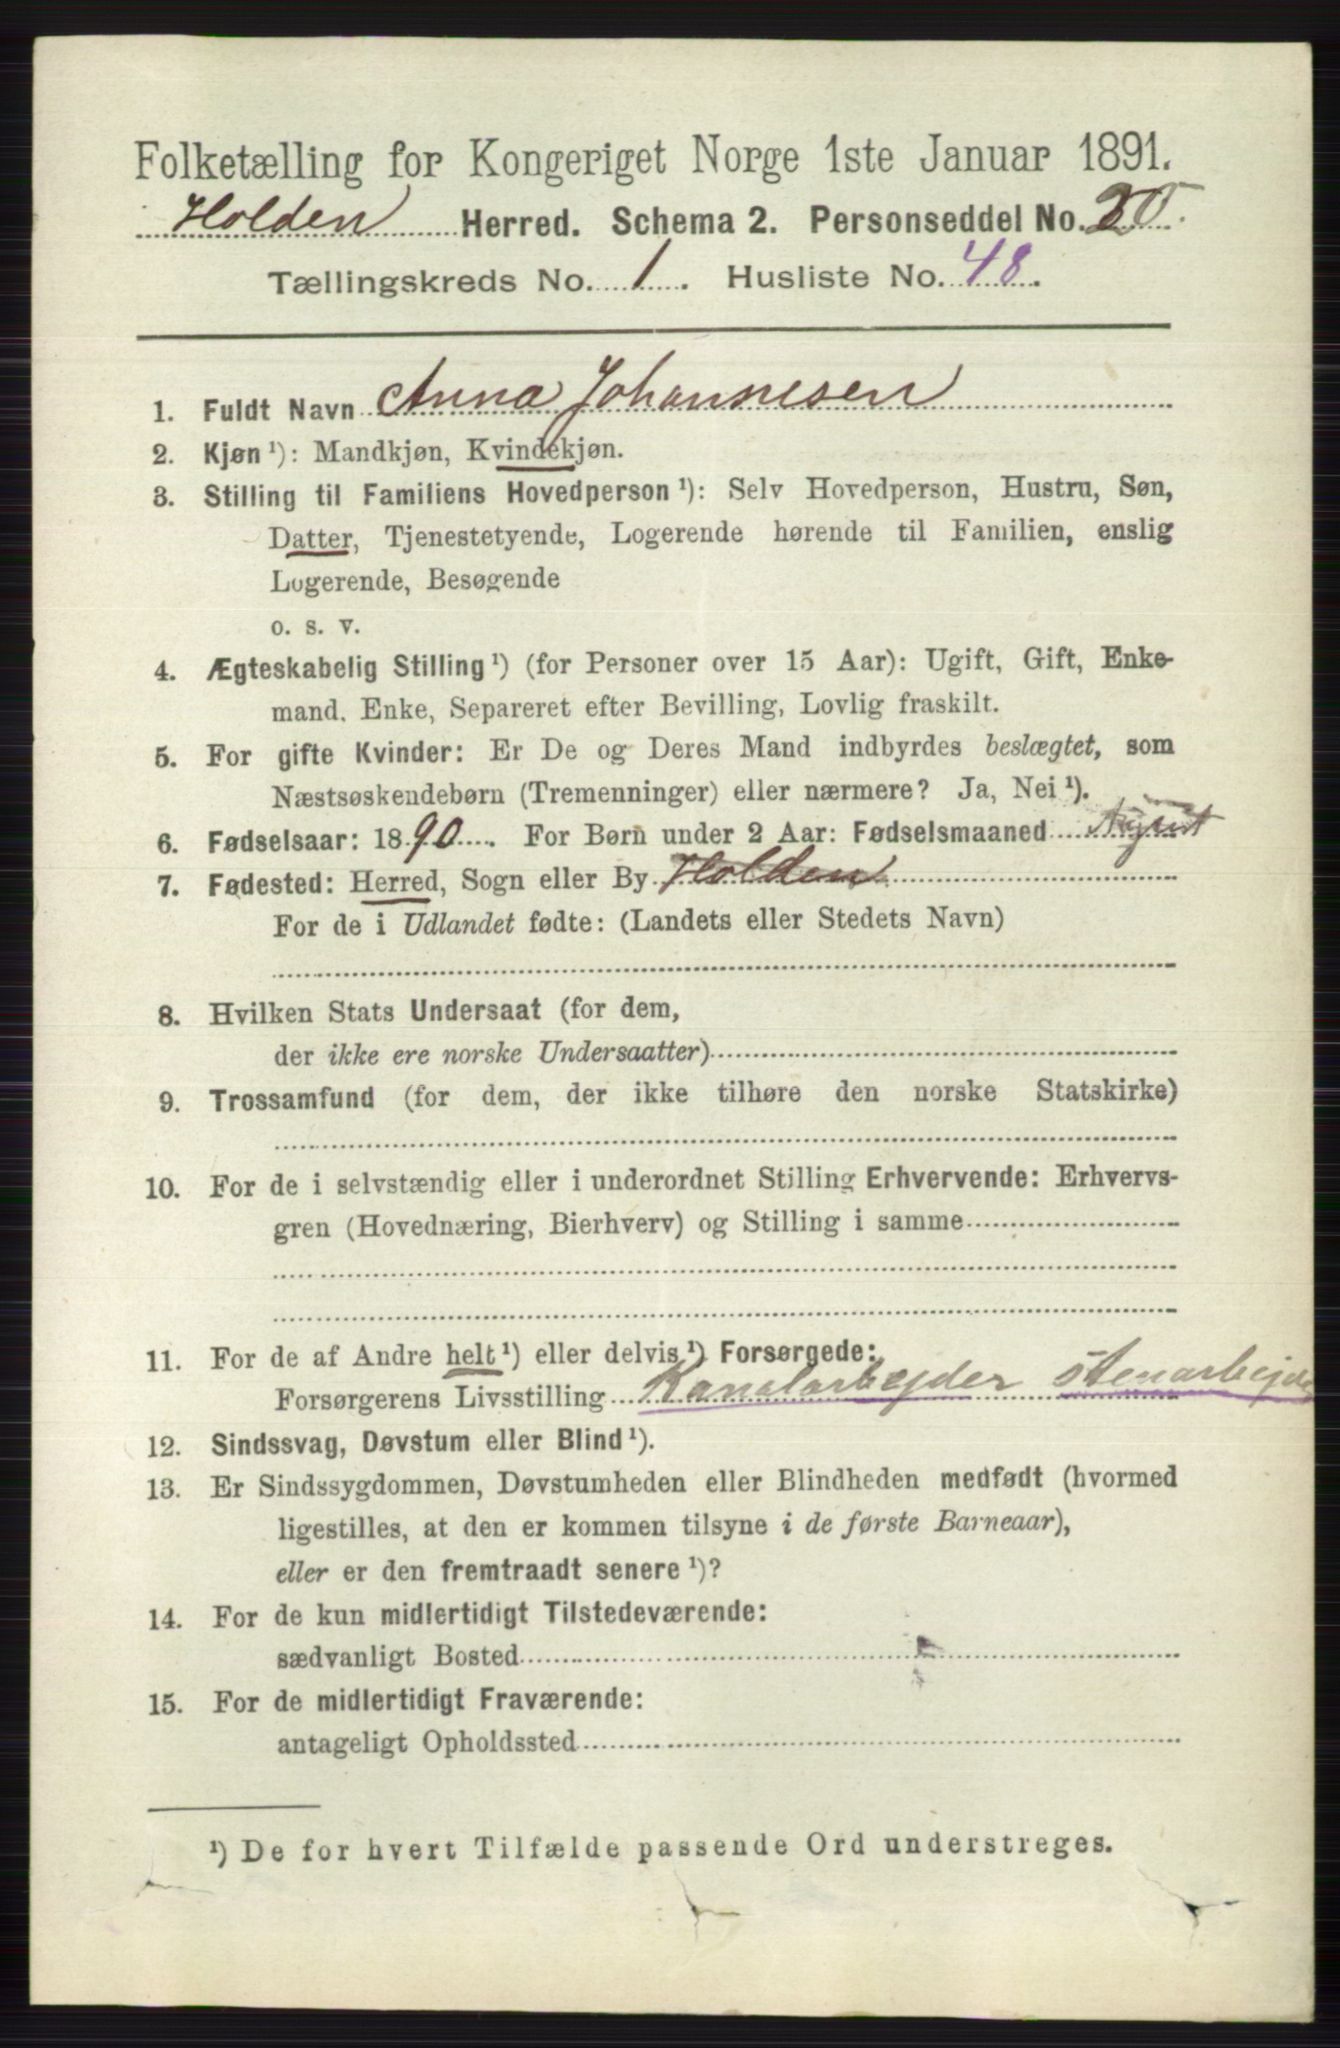 Folketælling for Kongeriget Norge 1ste Januar 1891.
Holden Herred. Schema 2. Personseddel No. 20.
Tællingskreds No. 1. Husliste No. 48.
1. Fuldt Navn Anna Johannesen
2. Kjøn ¹): Mandkjøn, Kvindekjøn.
3. Stilling til Familiens Hovedperson ¹): Selv Hovedperson, Hustru, Søn,
Datter, Tjenestetyende, Logerende hørende til Familien, enslig
Logerende, Besøgende
o. s. v.
4. Ægteskabelig Stilling ¹) (for Personer over 15 Aar): Ugift, Gift, Enke-
mand, Enke, Separeret efter Bevilling, Lovlig fraskilt.
5. For gifte Kvinder: Er De og Deres Mand indbyrdes beslægtet, som
Næstsøskendebørn (Tremenninger) eller nærmere? Ja, Nei ¹).
6. Fødselsaar: 1890. For Børn under 2 Aar: Fødselsmaaned August
7. Fødested: Herred, Sogn eller By Holden
For de i Udlandet fødte: (Landets eller Stedets Navn)
8. Hvilken Stats Undersaat (for dem,
der ikke ere norske Undersaatter)
9. Trossamfund (for dem, der ikke tilhøre den norske Statskirke)
10. For de i selvstændig eller i underordnet Stilling Erhvervende: Erhvervs-
gren (Hovednæring, Bierhverv) og Stilling i samme
11. For de af Andre helt ¹) eller delvis ¹) Forsørgede:
Forsørgerens Livsstilling Kanalarbejder Stenarbejder
12. Sindssvag, Døvstum eller Blind ¹).
13. Er Sindssygdommen, Døvstumheden eller Blindheden medfødt (hvormed
ligestilles, at den er kommen tilsyne i de første Barneaar),
eller er den fremtraadt senere ¹)?
14. For de kun midlertidigt Tilstedeværende:
sædvanligt Bosted
15. For de midlertidigt Fraværende:
antageligt Opholdssted
¹) De for hvert Tilfælde passende Ord understreges.